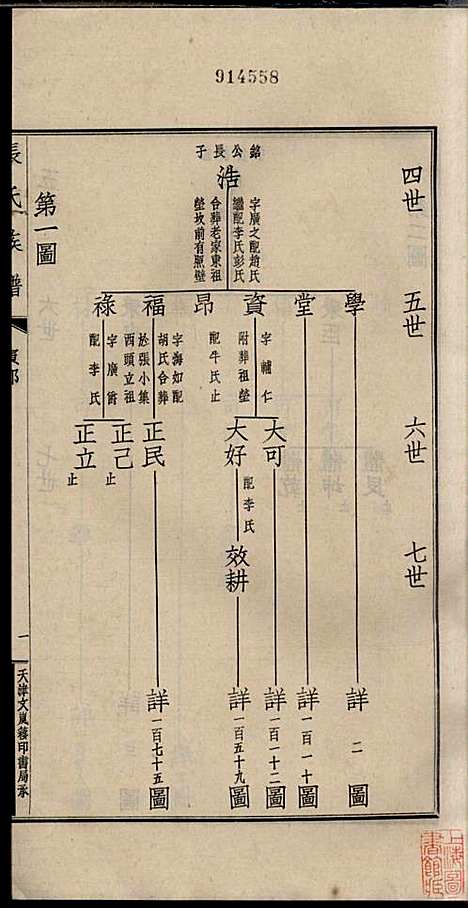 914558
四世
五世
六世
七世
銘公長子
浩
字廣之配趙氏
繼配李氏彭氏
合葬老家東祖
塋坟前有照壁
第一圖
學
堂
資
昂
福
祿
字輔仁
附葬祖塋
配牛氏止
字海如配
胡氏合葬
於張小集
西頭立祖
字廣爵
配李氏
大可
大好
配李氏
效耕
正民
正己
止
正立
止
詳二圖
詳一百一十圖
詳一百一十二圖
詳一百五十九圖
詳一百七十五圖
長氏族譜
一
天津文嵐簃印書局承
上海圖
書館藏